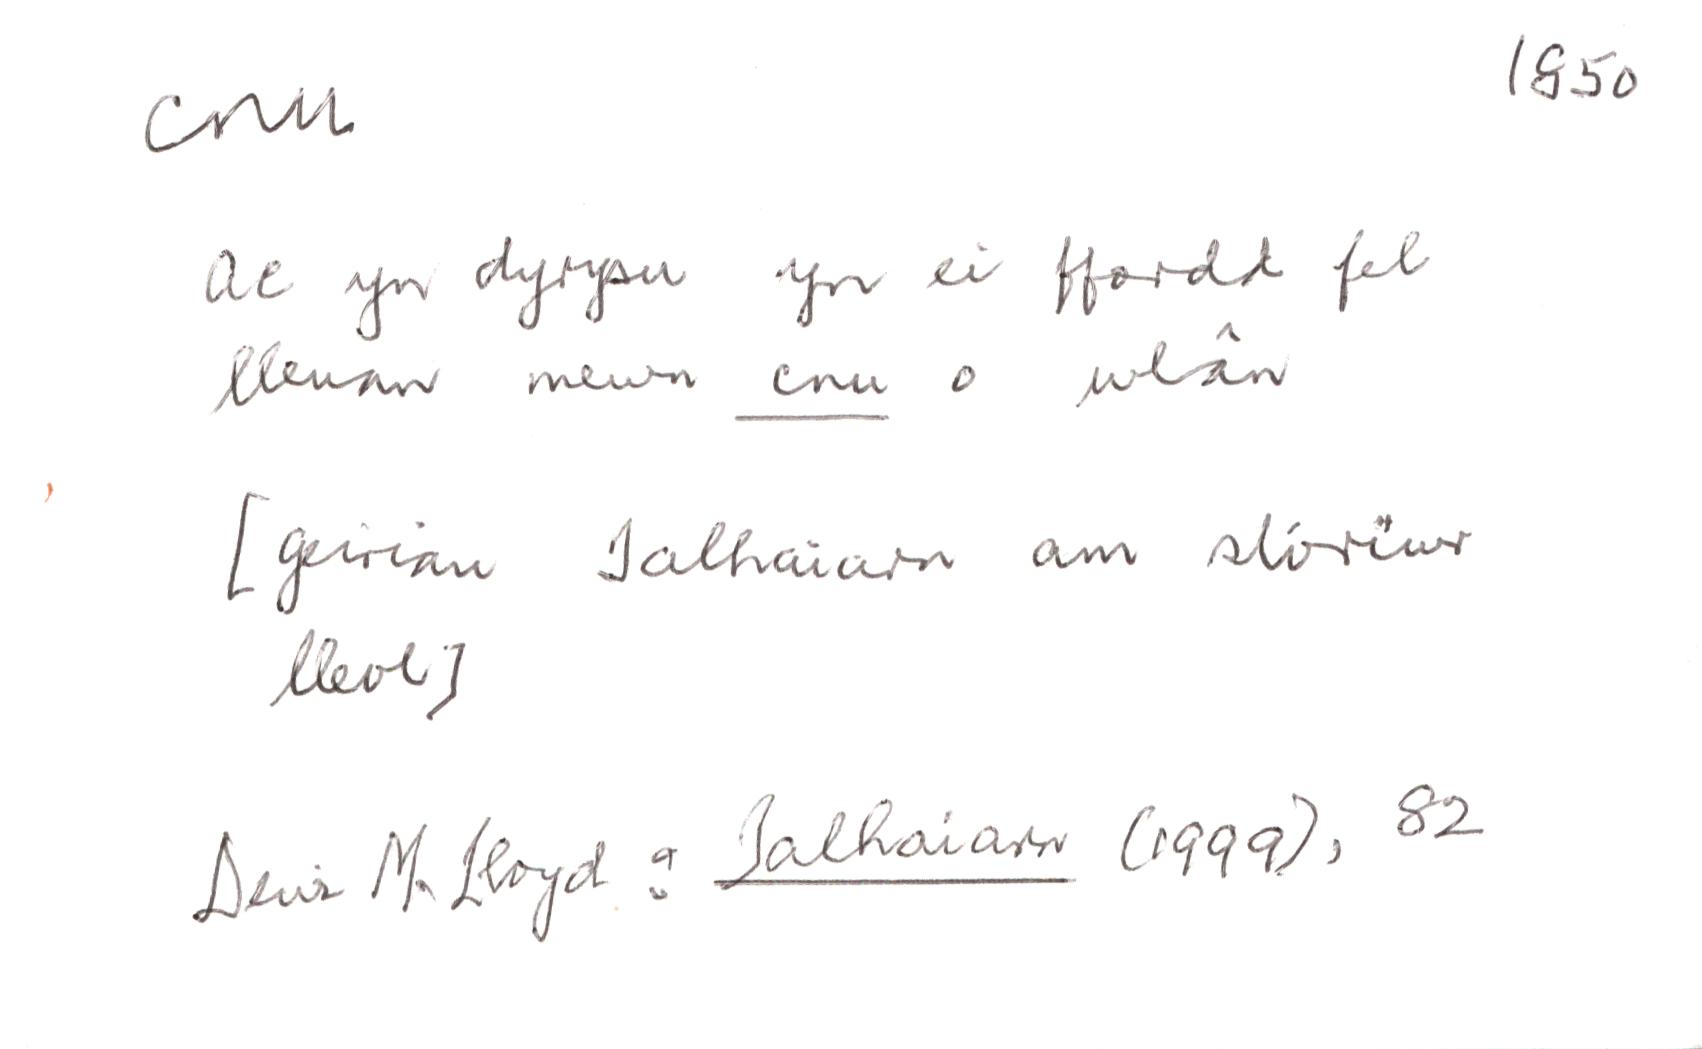 cnu
1850
Ac yn dyrysu yn ei ffordd fel
lleuan mewn cnu o wlân
[geiriau Talhaiarn am storïwr
lleol]
Dewi M. Lloyd: Talhaiarn (1999), 82